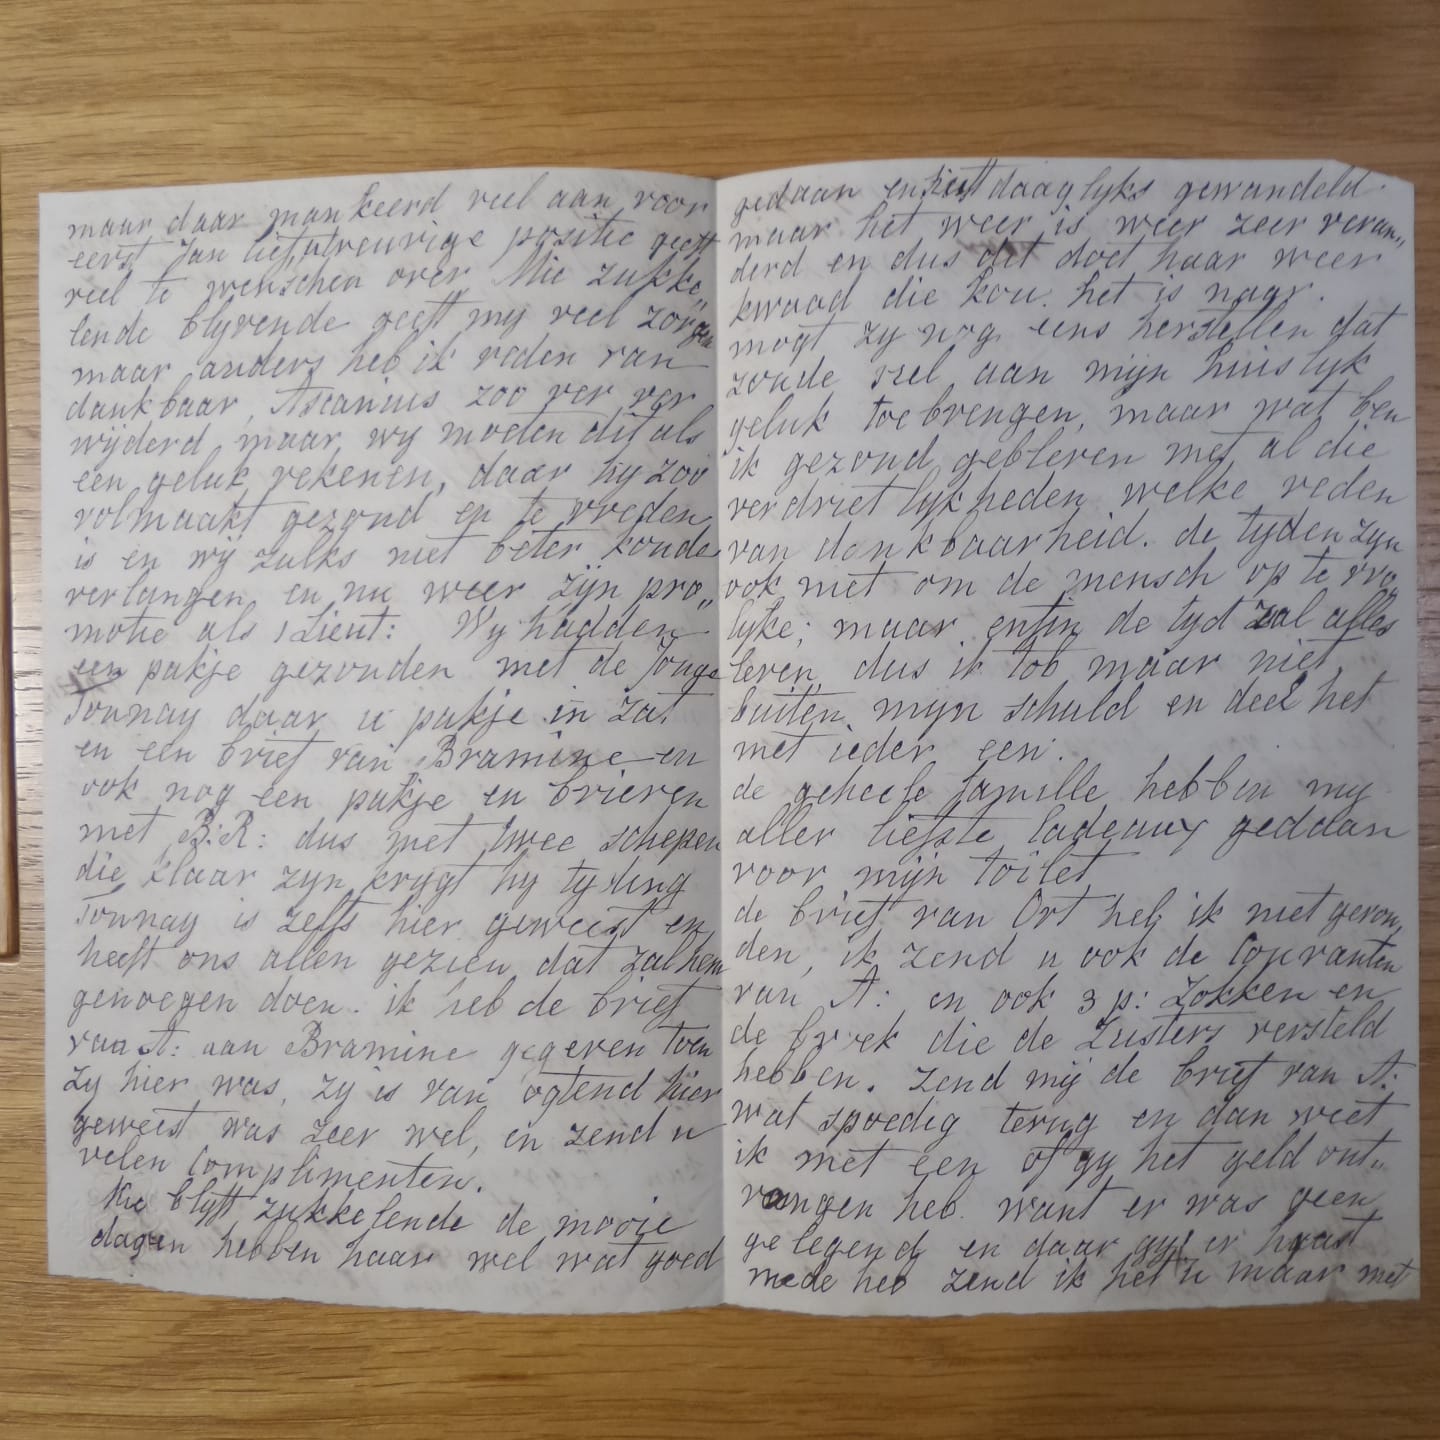 maar daar mankeerd veel aan voor
eerst Jan treurige positie geeft
veel te wenschen over Mie zukke„
lende blyvende geeft my veel zorgen
maar anders heb ik reden van
dankbaar, Ascanius zoo ver ver
wijderd maar wy moeten dit als
een geluk rekenen, daar hy zoo
volmaakt gezond en te vreden
is en wij zulks niet beter konde
verlangen en nu weer zijn pro„
motie als 1 Lient: Wy hadden
een pakje gezonden met de Jonge
Tournay daar u pakje in zat
en een brief van Bramine en
ook nog een pakje en brieven
met B:R: dus met twee schepen
die klaar zyn krygt hy tyding
Tournay is zelfs hier geweest en
heeft ons allen gezien dat zal hem
genoegen doen. ik heb de brief
van A: aan Bramine gegeven toen
zy hier was, zy is van ogtend hier
geweest was zeer wel, en zend u
velen Complimenten.
blyft zukkelende de mooie
dagen hebben haar wel wat goed
gedaan en daaglyks gewandeld.
maar het weer is weer zeer veran„
derd en dus dit doet haar weer
kwaad die kou. het is naar.
mogt zy nog eens herstellen dat
zoude veel aan mijn huislyk
geluk toebrengen, maar wat ben
ik gezond gebleven met al die
verdrietlykheden welke reden
van dankbaarheid. de tyden zyn
ook niet om de mensch op te vro„
lyke; maar enfin de tyd zal alles
leren dus ik tob maar niet
buiten mijn schuld en deel het
met ieder een.
de geheele familie hebben my
aller liefste Cadeaux gedaan
voor mijn toilet
de brief van Ort heb ik niet gevon„
den, ik zend u ook de Couranten
van A: en ook 3 p: Zokken en
de broek die de Zusters versteld
hebben. Zend mij de brief van A:
wat spoedig terug en dan weet
ik met een of gy het geld ont„
vangen heb. want er was geen
gelegend en daar gy er haast
mede heb zend ik het u maar met